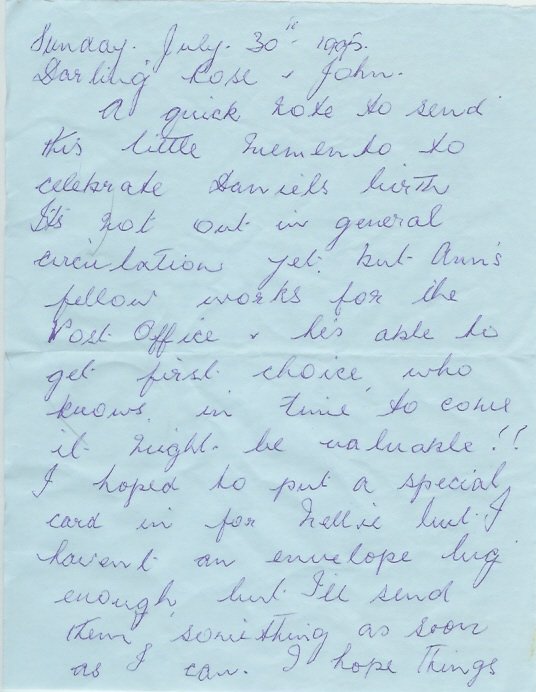 Sunday. July. 30th 1995.
Darling Rose & John.
A quick note to send
this little memento to
celebrate Daniels birth
It's not out in general
circulation yet, but Ann's
fellow works for the
Post Office & he's able to
get first choice, who
knows, in time to come
it might be valuable!!
I hoped to put a special
card in for Nellie but I
haven't an envelope big
enough, but I'll send
them something as soon
as I can. I hope things